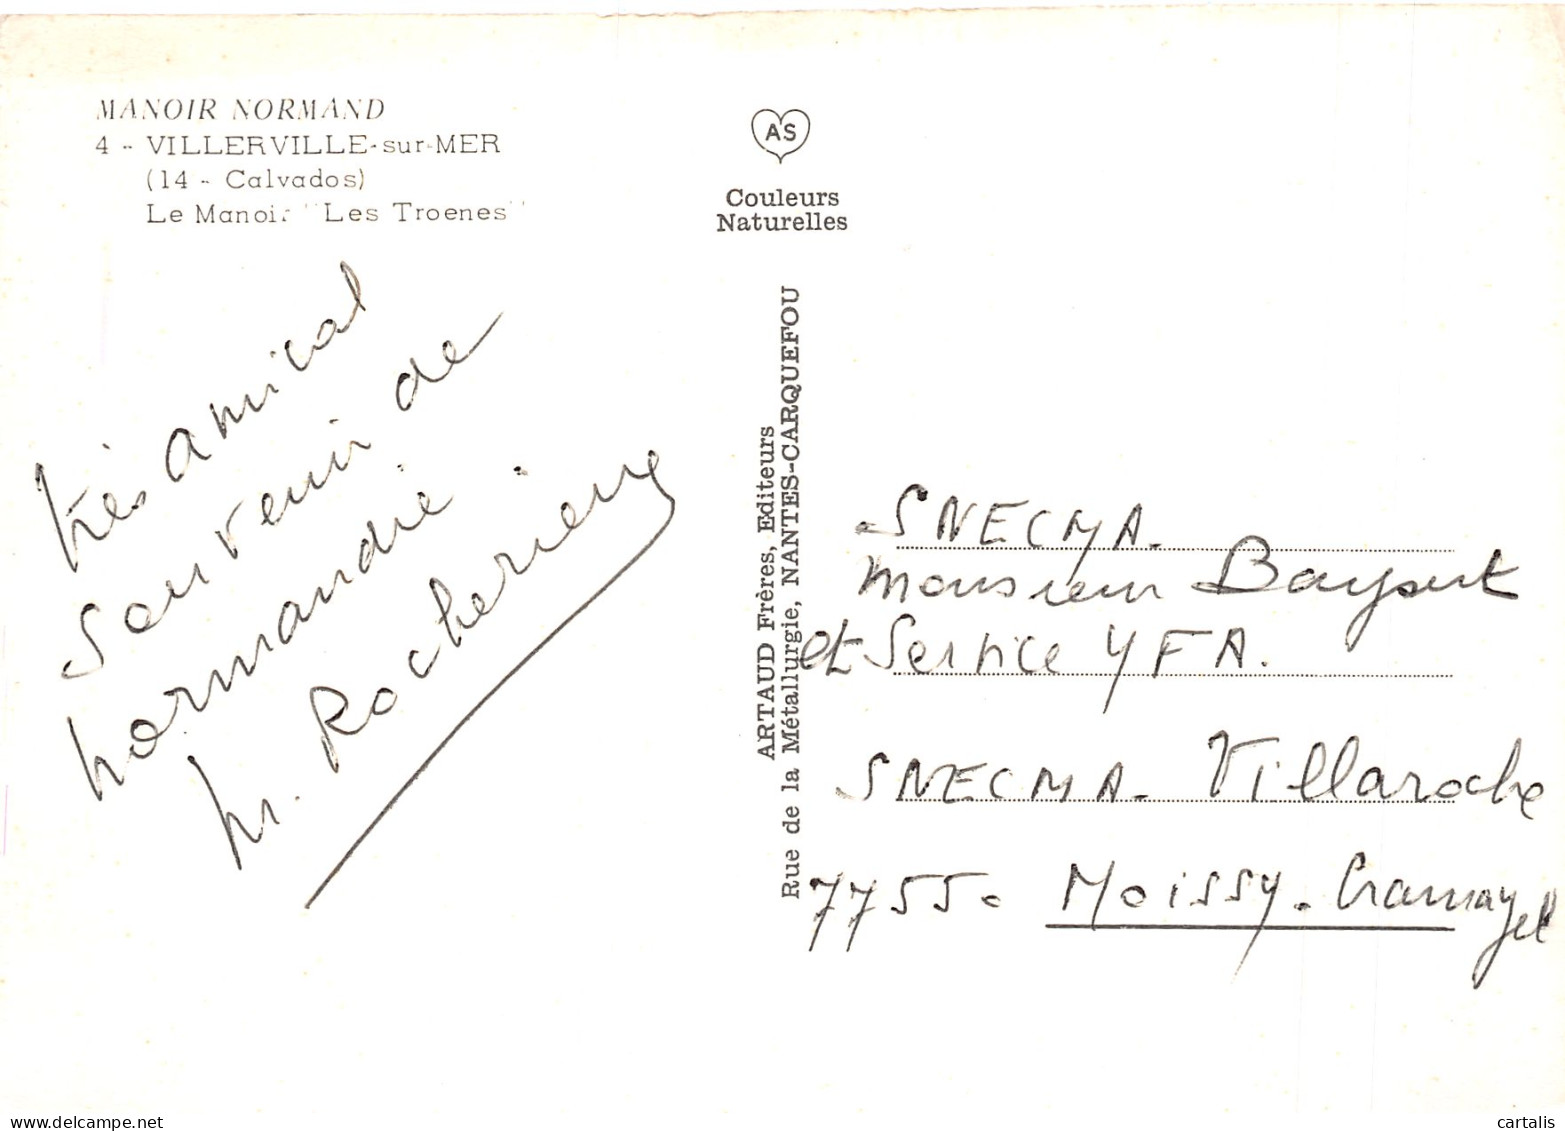 MANOIR NORMAND
4 - VILLERVILLE-sur-MER
(14 - Calvados)
Le Manoir "Les Troenes"
très amical
souvenir de
normandie
M. Rocherieux
AS
Couleurs
Naturelles
ARTAUD Frères, Editeurs
Rue de la Métallurgie, NANTES-CARQUEFOU
SNECMA.
Monsieur
et Service YFA.
SNECMA. Villaroche
77550. Moissy. Cramayel
cartalis
delcampe.net